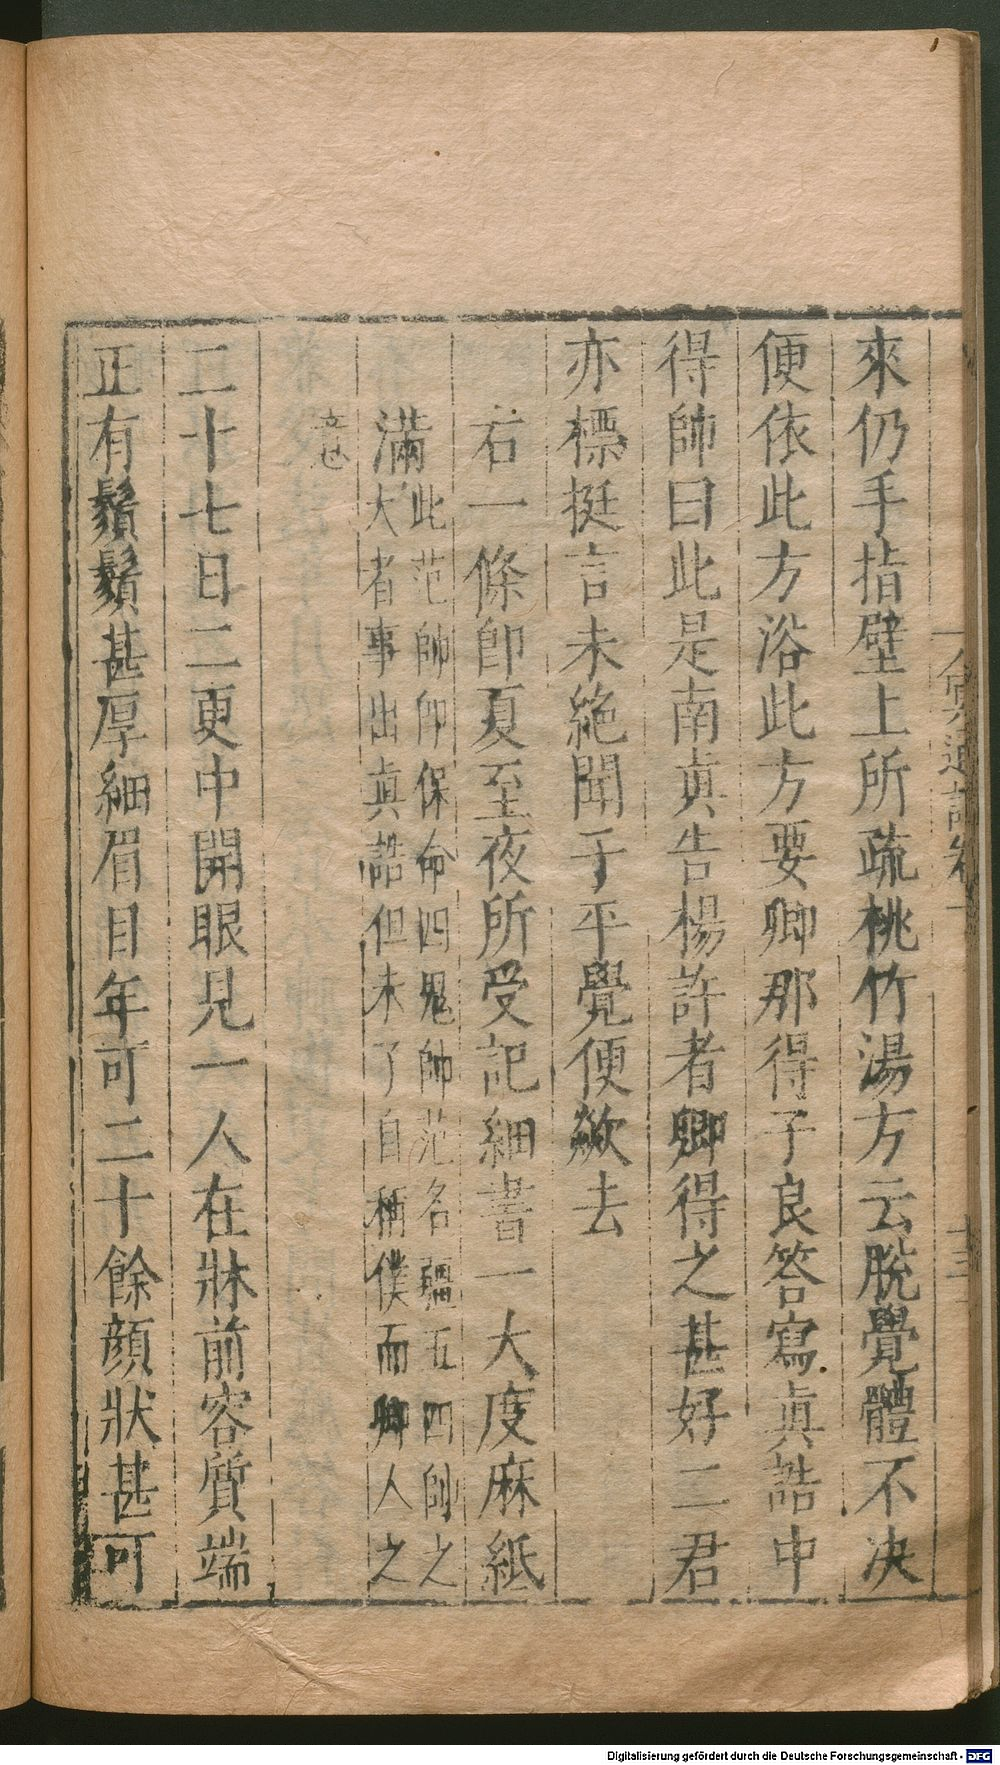 冥通記卷一
十三
來仍手指壁上所疏桃竹湯方云脫覺體不決
便依此方浴此方要卿那得子良答寫眞誥中
得帥曰此是南眞告楊許者卿得之甚好二君
亦標挺言未絶聞于平覺便歘去
右一條卽夏至夜所受記細書一大度麻紙
滿
此范帥卽保命四鬼帥范名疆五四帥之
大者事出眞誥但未了自稱僕而卿人之
意也
二十七日二更中開眼見一人在牀前容質端
正有鬚鬢甚厚細眉目年可二十餘顏狀甚可
Digitalisierung gefördert durch die Deutsche Forschungsgemeinschaft - DFG